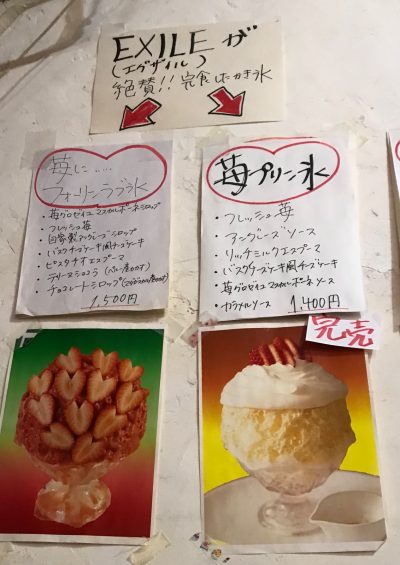 EXILEが
(エグザイル)
絶賛!!完食したかき氷
苺に.....
フォーリンラブ氷
・苺グロゼイユマスカルポーネシロップ
・フレッシュ苺
・自家製アングレーズシロップ
・バスクチーズケーキ風チーズケーキ
・ピスタチオエスプーマ
・テリーヌショコラ
・チョコレートシロップ
1,500円
苺プリン氷
・フレッシュ苺
・アングレーズソース
・リッチミルクエスプーマ
・バスクチーズケーキ風チーズケーキ
・苺グロゼイユマスカルポーネソース
・カラメルソース
1,400円
完売